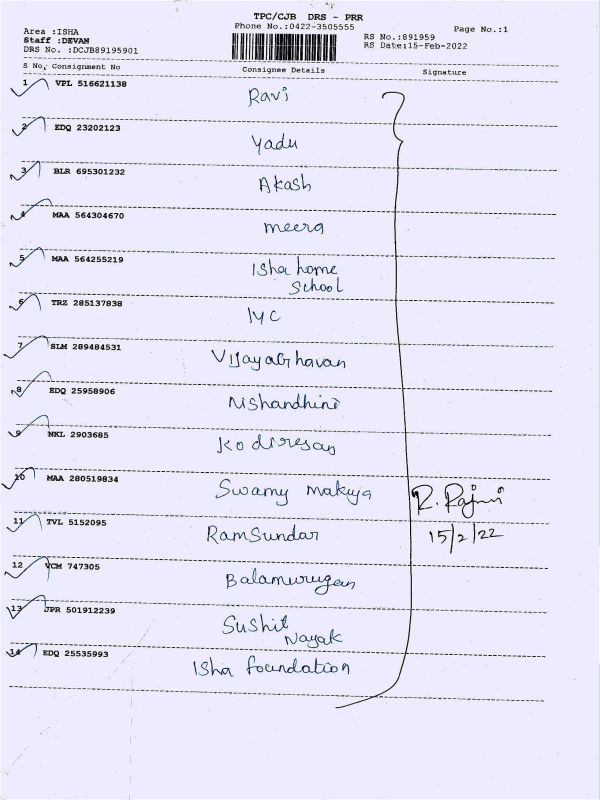 TPC/CJB DRS - PRR
Area :ISHA Phone No.:0422-3505555 Page No.:1
Staff :DEVAN RS No.:891959
DRS No. :DCJB89195901 RS Date:15-Feb-2022
S No, Consignment No Consignee Details Signature
1 VPL 516621138 Ravi
2 EDQ 23202123 Yadu
3 BLR 695301232 Akash
4 MAA 564304670 meera
5 MAA 564255219 Isha home
School
6 TRZ 285137838 IYC
7 SLM 289484531 Vijayaghavan
8 EDQ 25958906 Nishandhini
9 NKL 2903685 Kodiresan
10 MAA 280519834 Swamy makuya R. Rajini
11 TVL 5152095 RamSundar 15/2/22
12 VCM 747305 Balamurugan
13 JPR 501912239 Sushil
Nayak
14 EDQ 25535993 Isha foundation